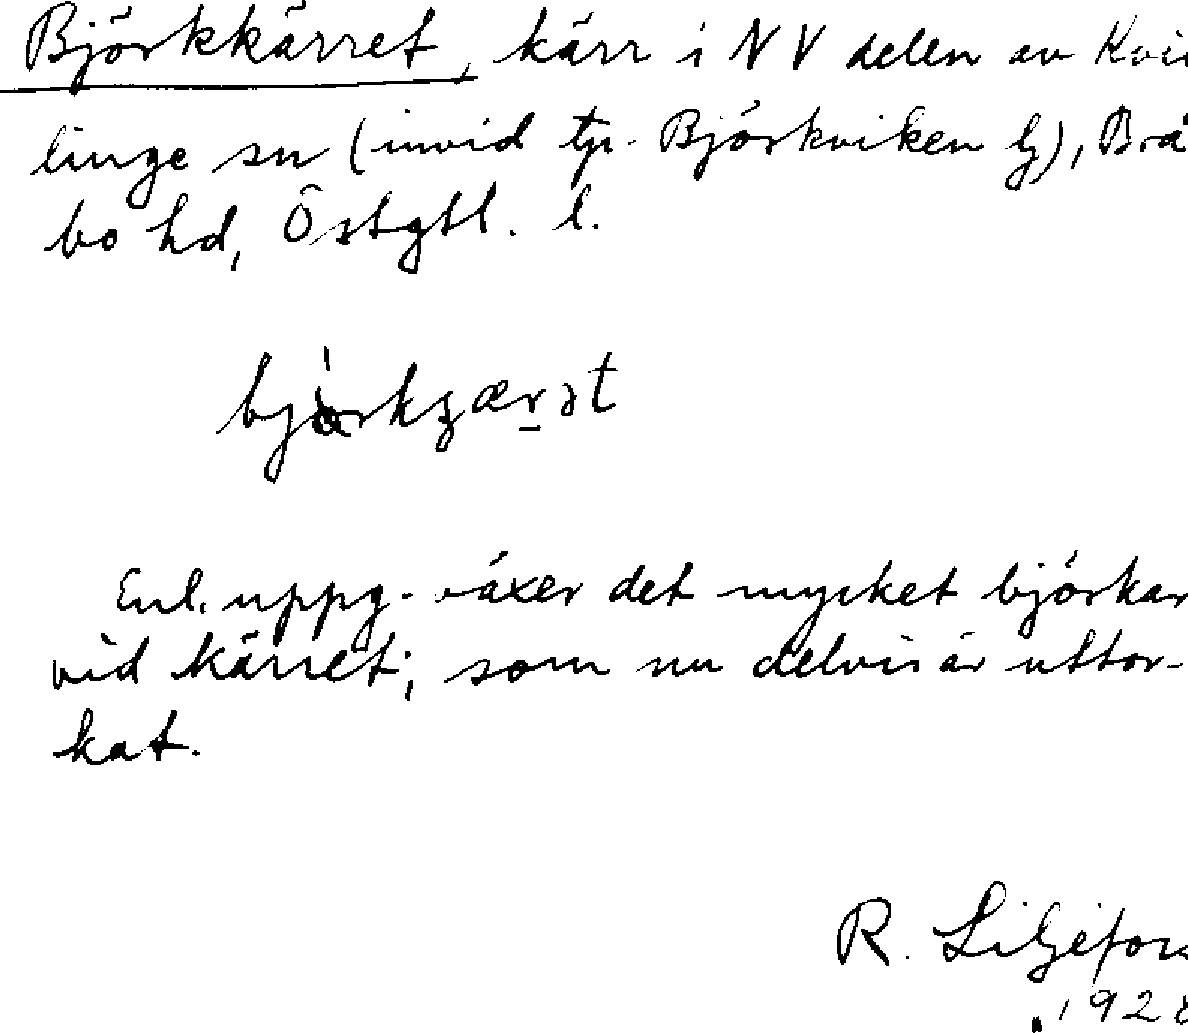 Björkkärret, kärr i NV delen av Kvil
linge sn (invid tp. Björkviken lj), Brå
bo hd, Östgtl. l.
Enl. uppg. växer det mycket björkar
vid kärret; som nu delvis är uttor-
kat.
R. Liljefors